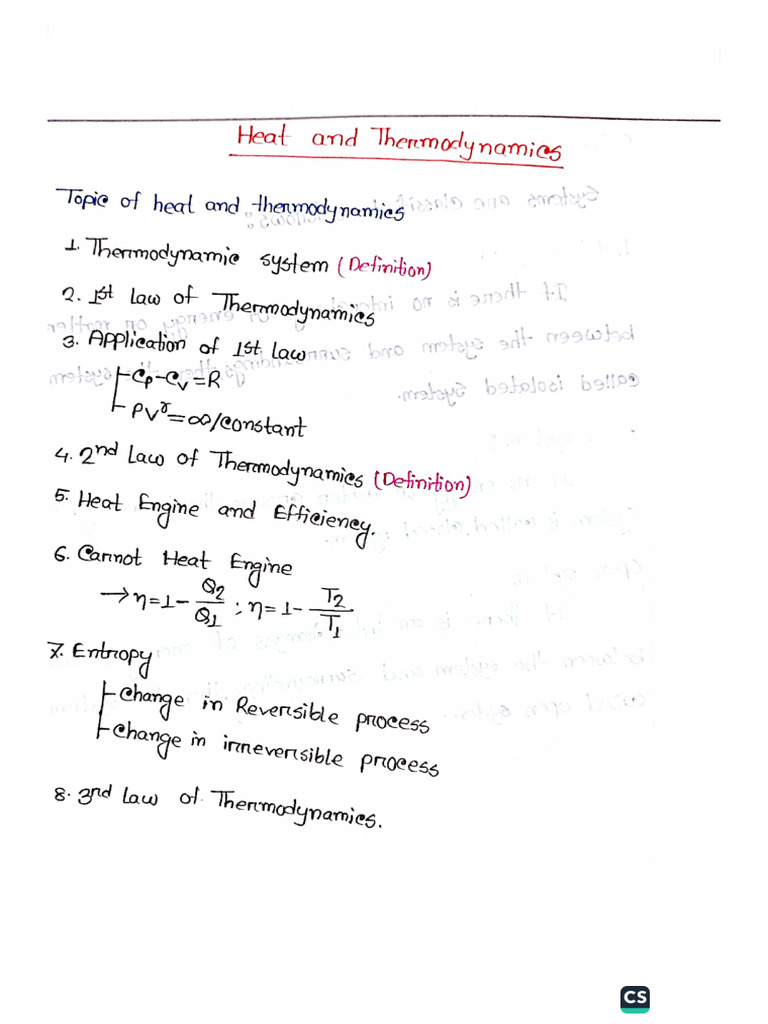 Heat and Thermodynamics
Topic of heat and thermodynamics
1. Thermodynamic system (Definition)
2. 1st Law of Thermodynamics
3. Application of 1st Law
Cp-Cv=R
PV^γ=∞/constant
4. 2nd Law of Thermodynamics (Definition)
5. Heat Engine and Efficiency.
6. Carnot Heat Engine
→η=1-Q2/Q1; η=1-T2/T1
7. Entropy
Change in Reversible process
Change in irreversible process
8. 3rd Law of Thermodynamics.
CS